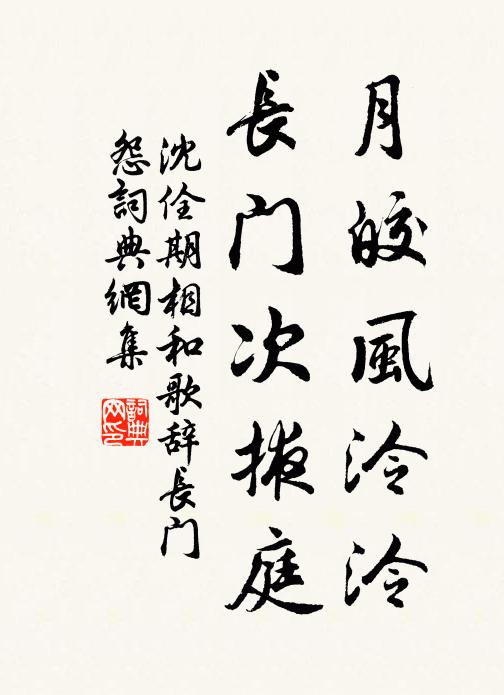 月皎風泠泠
長门次掖庭
沈佺期相和歌辞長门
怨詞典網集
詞典网印